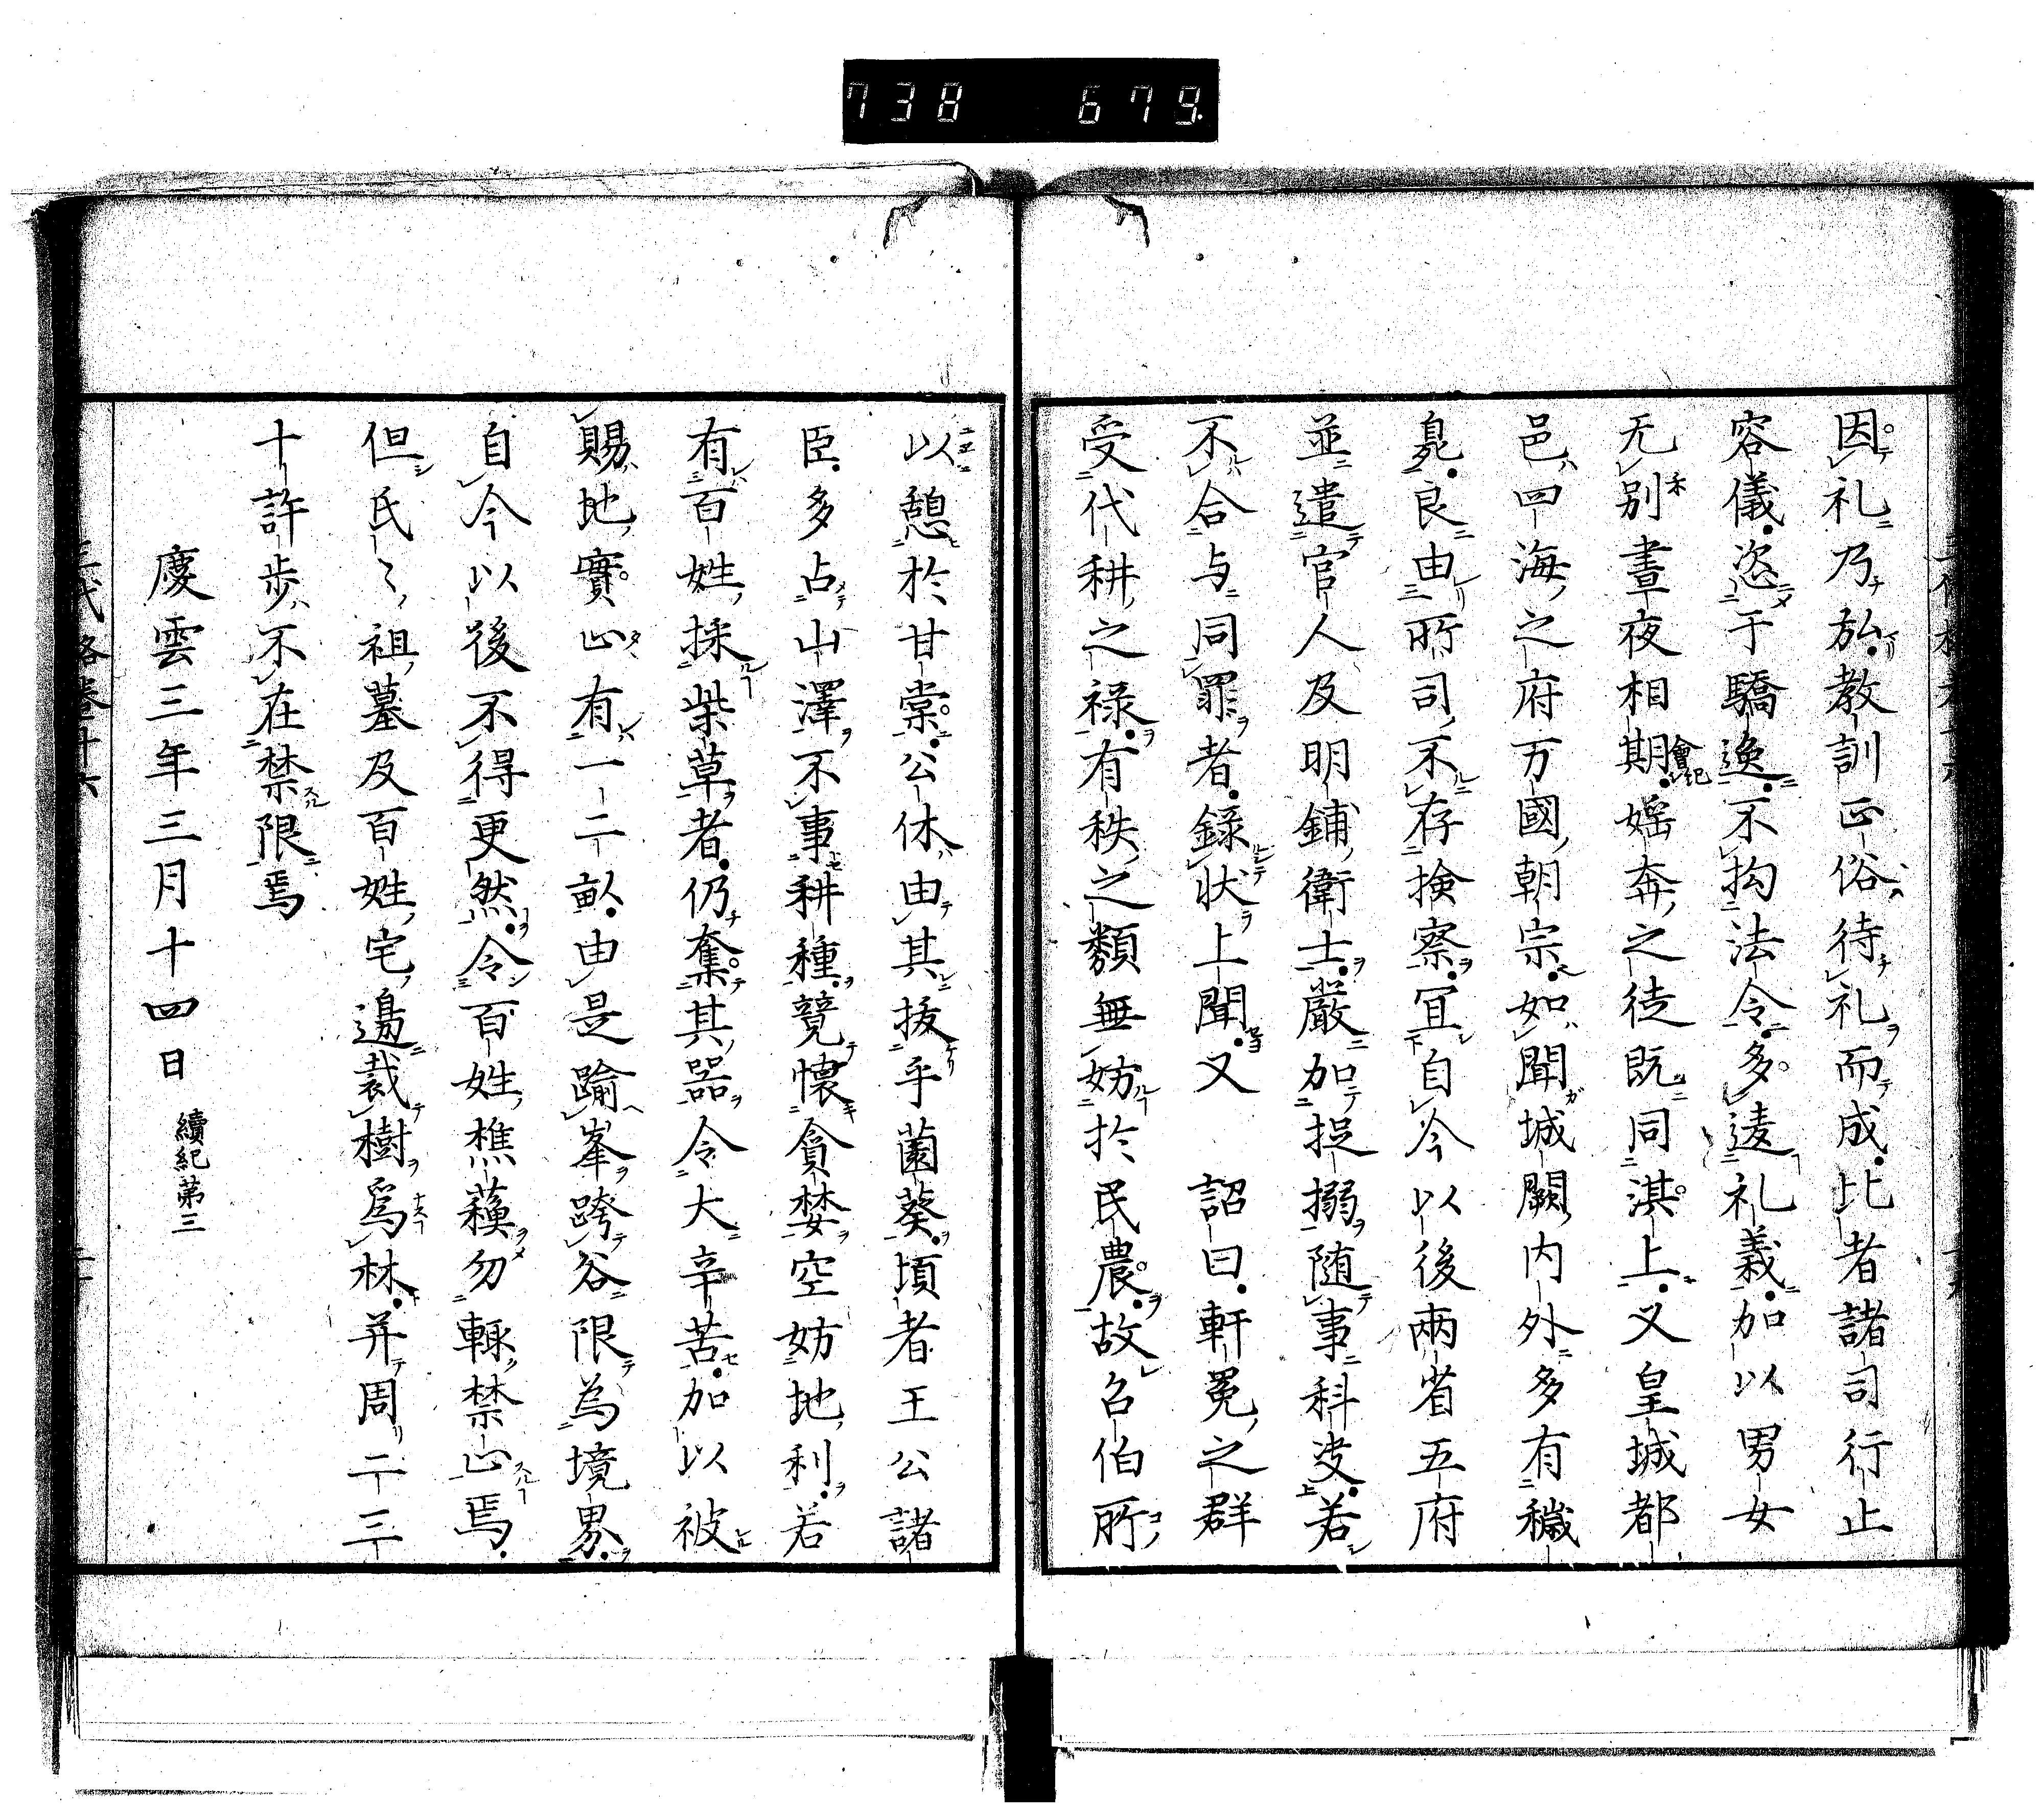 738 679
因礼乃於教訓正俗待礼而成比者諸司行止
容儀恣于驕逸不拘法令多違礼義加以男女
无別晝夜相期會紀婬奔之徒既同淇上又皇城都
邑四海之府万國朝宗如聞城闕内外多有穢
臰良由所司不存検察冝自今以後兩省五府
並遣官人及明鋪衛士嚴加捉搦随事科决若
不合与同罪者錄状上聞又　詔曰軒冕之群
受代耕之禄有秩之類無妨於民農故召伯所
以憩於甘棠公休由其拔乎園葵頃者王公諸
臣多占山澤不事耕種競懐貪婪空妨地利若
有百姓採柴草者仍奪其器令大辛苦加以被
賜地實止有一二畝由是踰峯跨谷限為境界
自今以後不得更然令百姓樵蘓勿輙禁止焉
但氏〻祖墓及百姓宅邊裁樹爲林并周二三
十許歩不在禁限焉
慶雲三年三月十四日 續紀第三